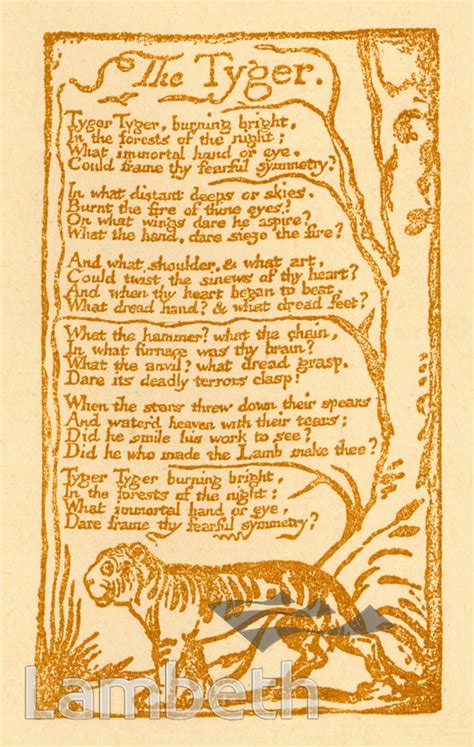 The Tyger.
Tyger Tyger, burning bright,
In the forests of the night;
What immortal hand or eye,
Could frame thy fearful symmetry?
In what distant deeps or skies.
Burnt the fire of thine eyes?
On what wings dare he aspire?
What the hand, dare sieze the fire?
And what shoulder, & what art,
Could twist the sinews of thy heart?
And when thy heart began to beat,
What dread hand? & what dread feet?
What the hammer? what the chain,
In what furnace was thy brain?
What the anvil? what dread grasp.
Dare its deadly terrors clasp!
When the stars threw down their spears
And water'd heaven with their tears:
Did he smile his work to see?
Did he who made the Lamb make thee?
Tyger Tyger burning bright,
In the forests of the night:
What immortal hand or eye,
Dare frame thy fearful symmetry?
Lambeth